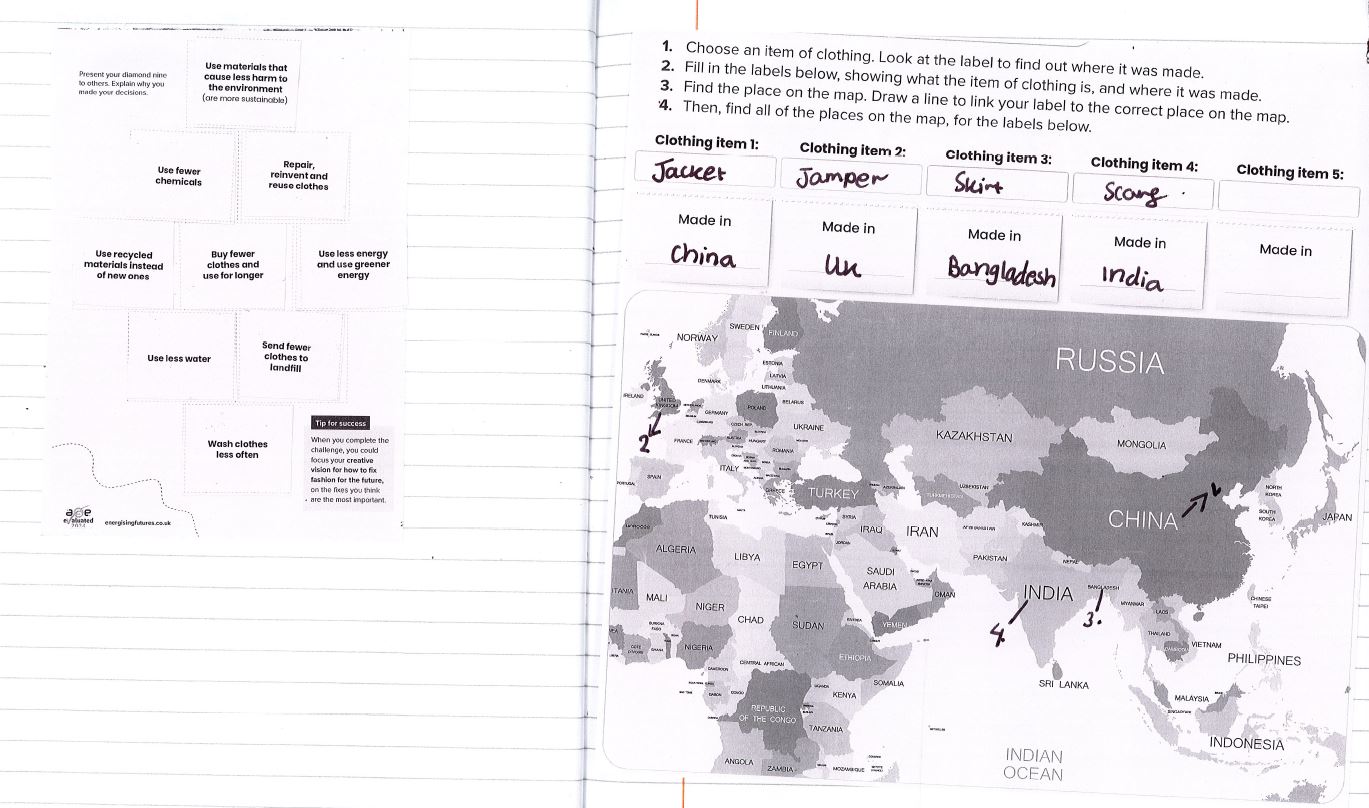 Present your diamond nine
to others. Explain why you
made your decisions.
Use materials that
cause less harm to
the environment
(are more sustainable)
Use fewer
chemicals
Repair,
reinvent and
reuse clothes
Use recycled
materials instead
of new ones
Buy fewer
clothes and
use for longer
Use less energy
and use greener
energy
Use less water
Send fewer
clothes to
landfill
Wash clothes
less often
Tip for success
When you complete the
challenge, you could
focus your creative
vision for how to fix
fashion for the future,
on the fixes you think
are the most important.
energisingfutures.co.uk
1. Choose an item of clothing. Look at the label to find out where it was made.
2. Fill in the labels below, showing what the item of clothing is, and where it was made.
3. Find the place on the map. Draw a line to link your label to the correct place on the map.
4. Then, find all of the places on the map, for the labels below.
Clothing item 1:
Jacket
Made in
China
Clothing item 2:
Jamper
Made in
UK
Clothing item 3:
Skirt
Made in
Bangladesh
Clothing item 4:
Scarf
Made in
India
Clothing item 5:
Made in
NORWAY
SWEDEN
FINLAND
RUSSIA
ESTONIA
LATVIA
LITHUANIA
DENMARK
IRELAND
UNITED
KINGDOM
2
BELARUS
POLAND
GERMANY
UKRAINE
FRANCE
HUNGARY
ROMANIA
ITALY
SPAIN
PORTUGAL
GREECE
TURKEY
KAZAKHSTAN
MONGOLIA
UZBEKISTAN
TURKMENISTAN
CHINA
NORTH
KOREA
SOUTH
KOREA
JAPAN
TUNISIA
SYRIA
IRAQ
JORDAN
IRAN
AFGHANISTAN
KASHMIR
PAKISTAN
NEPAL
MOROCCO
ALGERIA
LIBYA
EGYPT
SAUDI
ARABIA
OMAN
YEMEN
INDIA
4
BANGLADESH
3.
MYANMAR
LAOS
THAILAND
VIETNAM
CAMBODIA
CHINESE
TAIPEI
PHILIPPINES
SRI LANKA
MALAYSIA
SINGAPORE
INDONESIA
ITANIA
MALI
NIGER
CHAD
SUDAN
ERITREA
BURKINA
FASO
COTE
D'IVOIRE
GHANA
NIGERIA
CAMEROON
CENTRAL AFRICAN
ETHIOPIA
SOMALIA
UGANDA
KENYA
GABON
CONGO
REPUBLIC
OF THE CONGO
TANZANIA
ANGOLA
ZAMBIA
MOZAMBIQUE
INDIAN
OCEAN